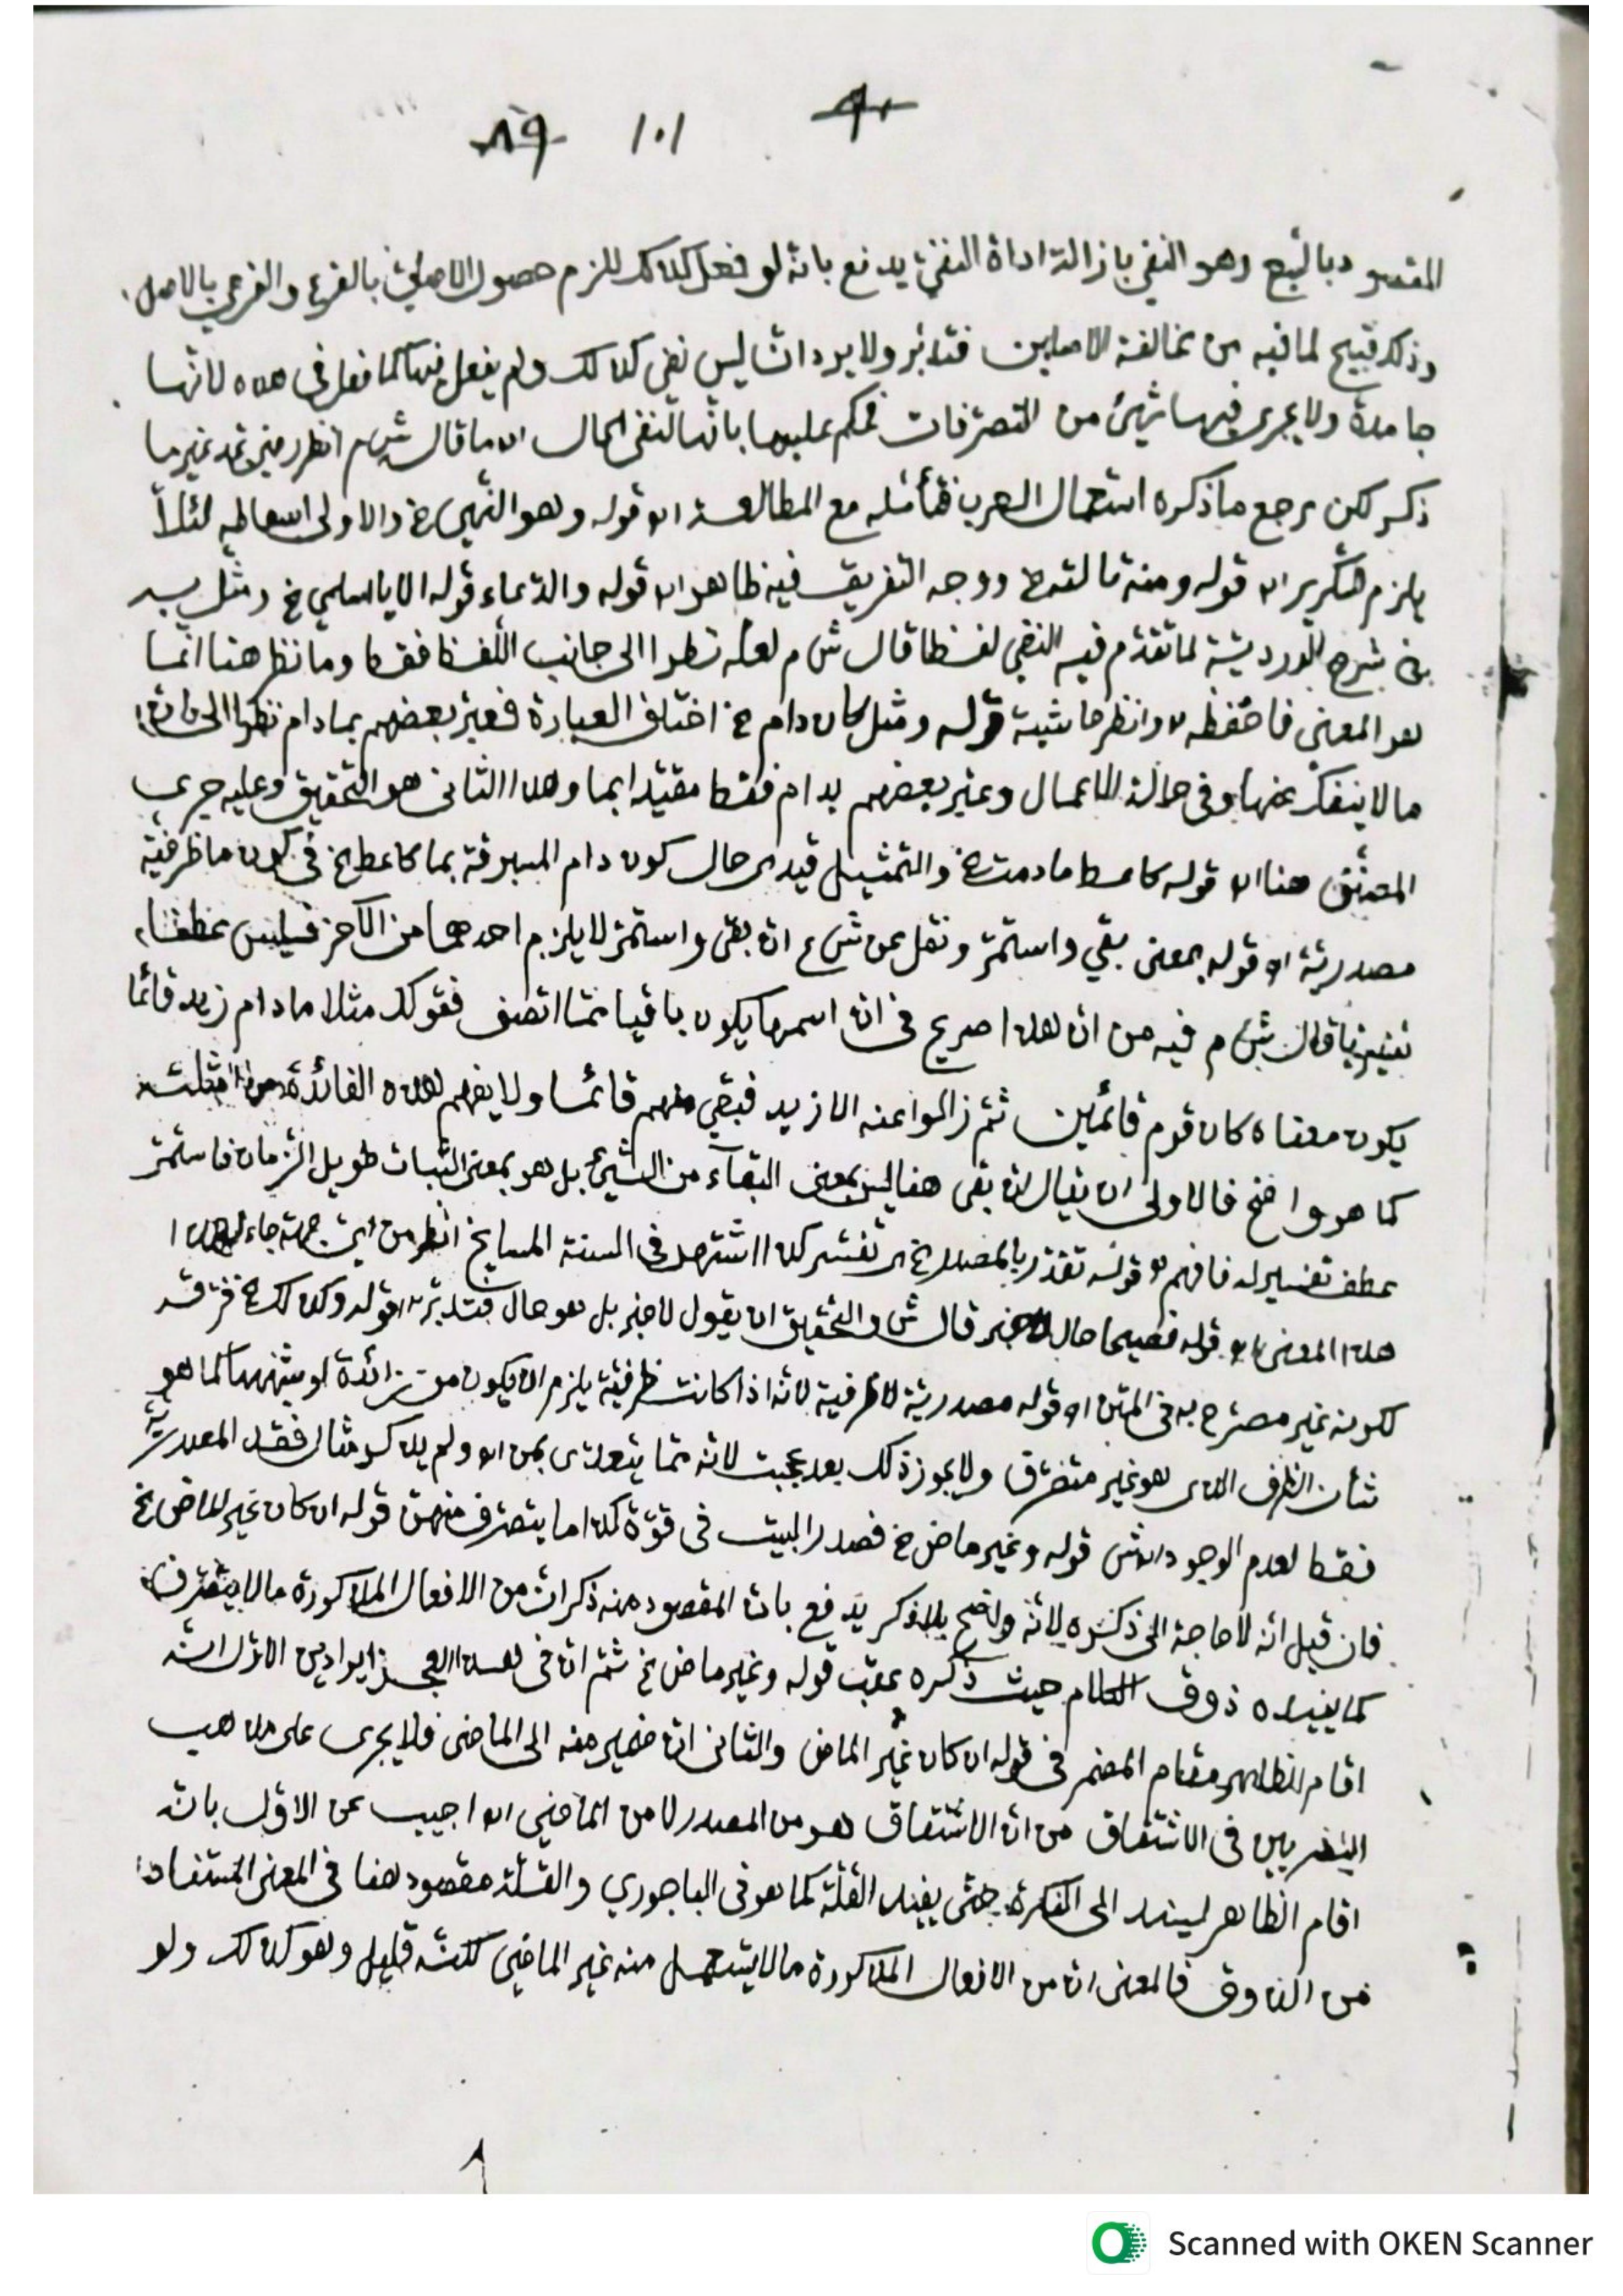 ٩٠ ١٠١ ٨٩
المقصود بالتبع وهو النفي بازالة اداة النفي يدفع بانه لو فعل كذلك للزم حصول الاصلي بالفرع والفرعي بالاصل
وذلك قبيح لما فيه من مخالفة الاصلين فتدبر ولا يرد ان ليس نفي كذلك ولم يفعل فيها كما فعل في هذه لانها
جامدة ولا يجرى فيها شيئ من التصرفات فحكم عليها بانها لنفي الحال اه ما قال ش م انظر غير ما
ذكر لكن يرجع ما ذكره استعمال العرب فتأمله مع المطالعة اه قوله وهو النهي الخ والاولى اسقاطه لئلا
يلزم التكرير اه قوله ومنه تالله الخ ووجه التفريق فيه ظاهر اه قوله والدعاء قوله الا يا اسلمي الخ ومثل به
في شرح لما تقدم فيه النفي لفظا قال ش م لعله نظرا الى جانب اللفظ فقط وما نظر هنا انما
هو المعنى فاحفظه اه وانظر حاشية قوله ومثل كان دام الخ اختلف العبارة فعبر بعضهم بمادام نظرا الى ان
ما لا ينفك عنها وفي حالة الاعمال وعبر بعضهم بدام فقط مقيدا بما وهذا الثاني هو التحقيق وعليه جرى
المصنف هنا اه قوله كاعط مادمت الخ والتمثيل قيد اى حال كون دام المسبوقة بما كاعط الخ في كون ما ظرفية
مصدرية اه قوله بمعنى بقي واستمر ونقل عن ش ع ان بقى واستمر لا يلزم احدهما من الآخر فليس عطفا
تفسيريا قال ش م فيه من ان هذا صريح في ان اسمها يكون باقيا مما اتصف فقولك مثلا مادام زيد قائما
يكون معناه كان قوم قائمين ثم زالوا عنه الا زيد فبقي منهم قائما ولا يفهم هذه الفائدة من امثلته
كما هو واضح فالاولى ان يقال ان بقى هنا ليس بمعنى البقآء من الشيئ بل هو بمعنى الثبات طويل الزمان فاستمر
عطف تفسير له فافهم اه قوله تقدر بالمصدر الخ اى تفسر كذا اشتهر في السنة المشايخ انظر من اين جهة جاء لهذا
هذا المعنى اه قوله فصيحا حال لا خبر قال ش والتحقيق ان يقول لا خبر بل هو حال فتدبر اه قوله وكذلك الخ فرقه
لكونه غير مصرح به في المتن اه قوله مصدرية لا ظرفية لانه اذا كانت ظرفية يلزم ان يكون من زائدة لو شبهها كما هو
شأن الظرف الذى هو غير متصرف ولا يجوز ذلك بعد عجبت لانه مما يتعدى بمن اه ولم يذكر مثال فقد المصدرية
فقط لعدم الوجود اه ش قوله وغير ماض الخ فصدر البيت في قوة كذا ما يتصرف منهن قوله ان كان غير الماض الخ
فان قيل انه لا حاجة الى ذكره لانه واضح بلا ذكر يدفع بان المقصود منه ذكر ان من الافعال المذكورة ما لا يتصرف
كما يفيده ذوق الكلام حيث ذكره عقب قوله وغير ماض الخ ثم ان في هذا العجز ايرادين الاول انه
اقام الظاهر مقام المضمر في قوله ان كان غير الماض والثاني ان ضمير منه الى الماضي فلا يجرى على مذهب
البصريين في الاشتقاق من ان الاشتقاق هو من المصدر لا من الماضي اه اجيب عن الاول بانه
اقام الظاهر ليسند الى النكرة حتى يفيد القلة كما هو في الباجوري والقلة مقصود هنا في المعنى المستفاد
من الذوق فالمعنى ان من الافعال المذكورة ما لا يستعمل منه غير الماضي لكنه قليل وهو كذلك ولو
Scanned with OKEN Scanner